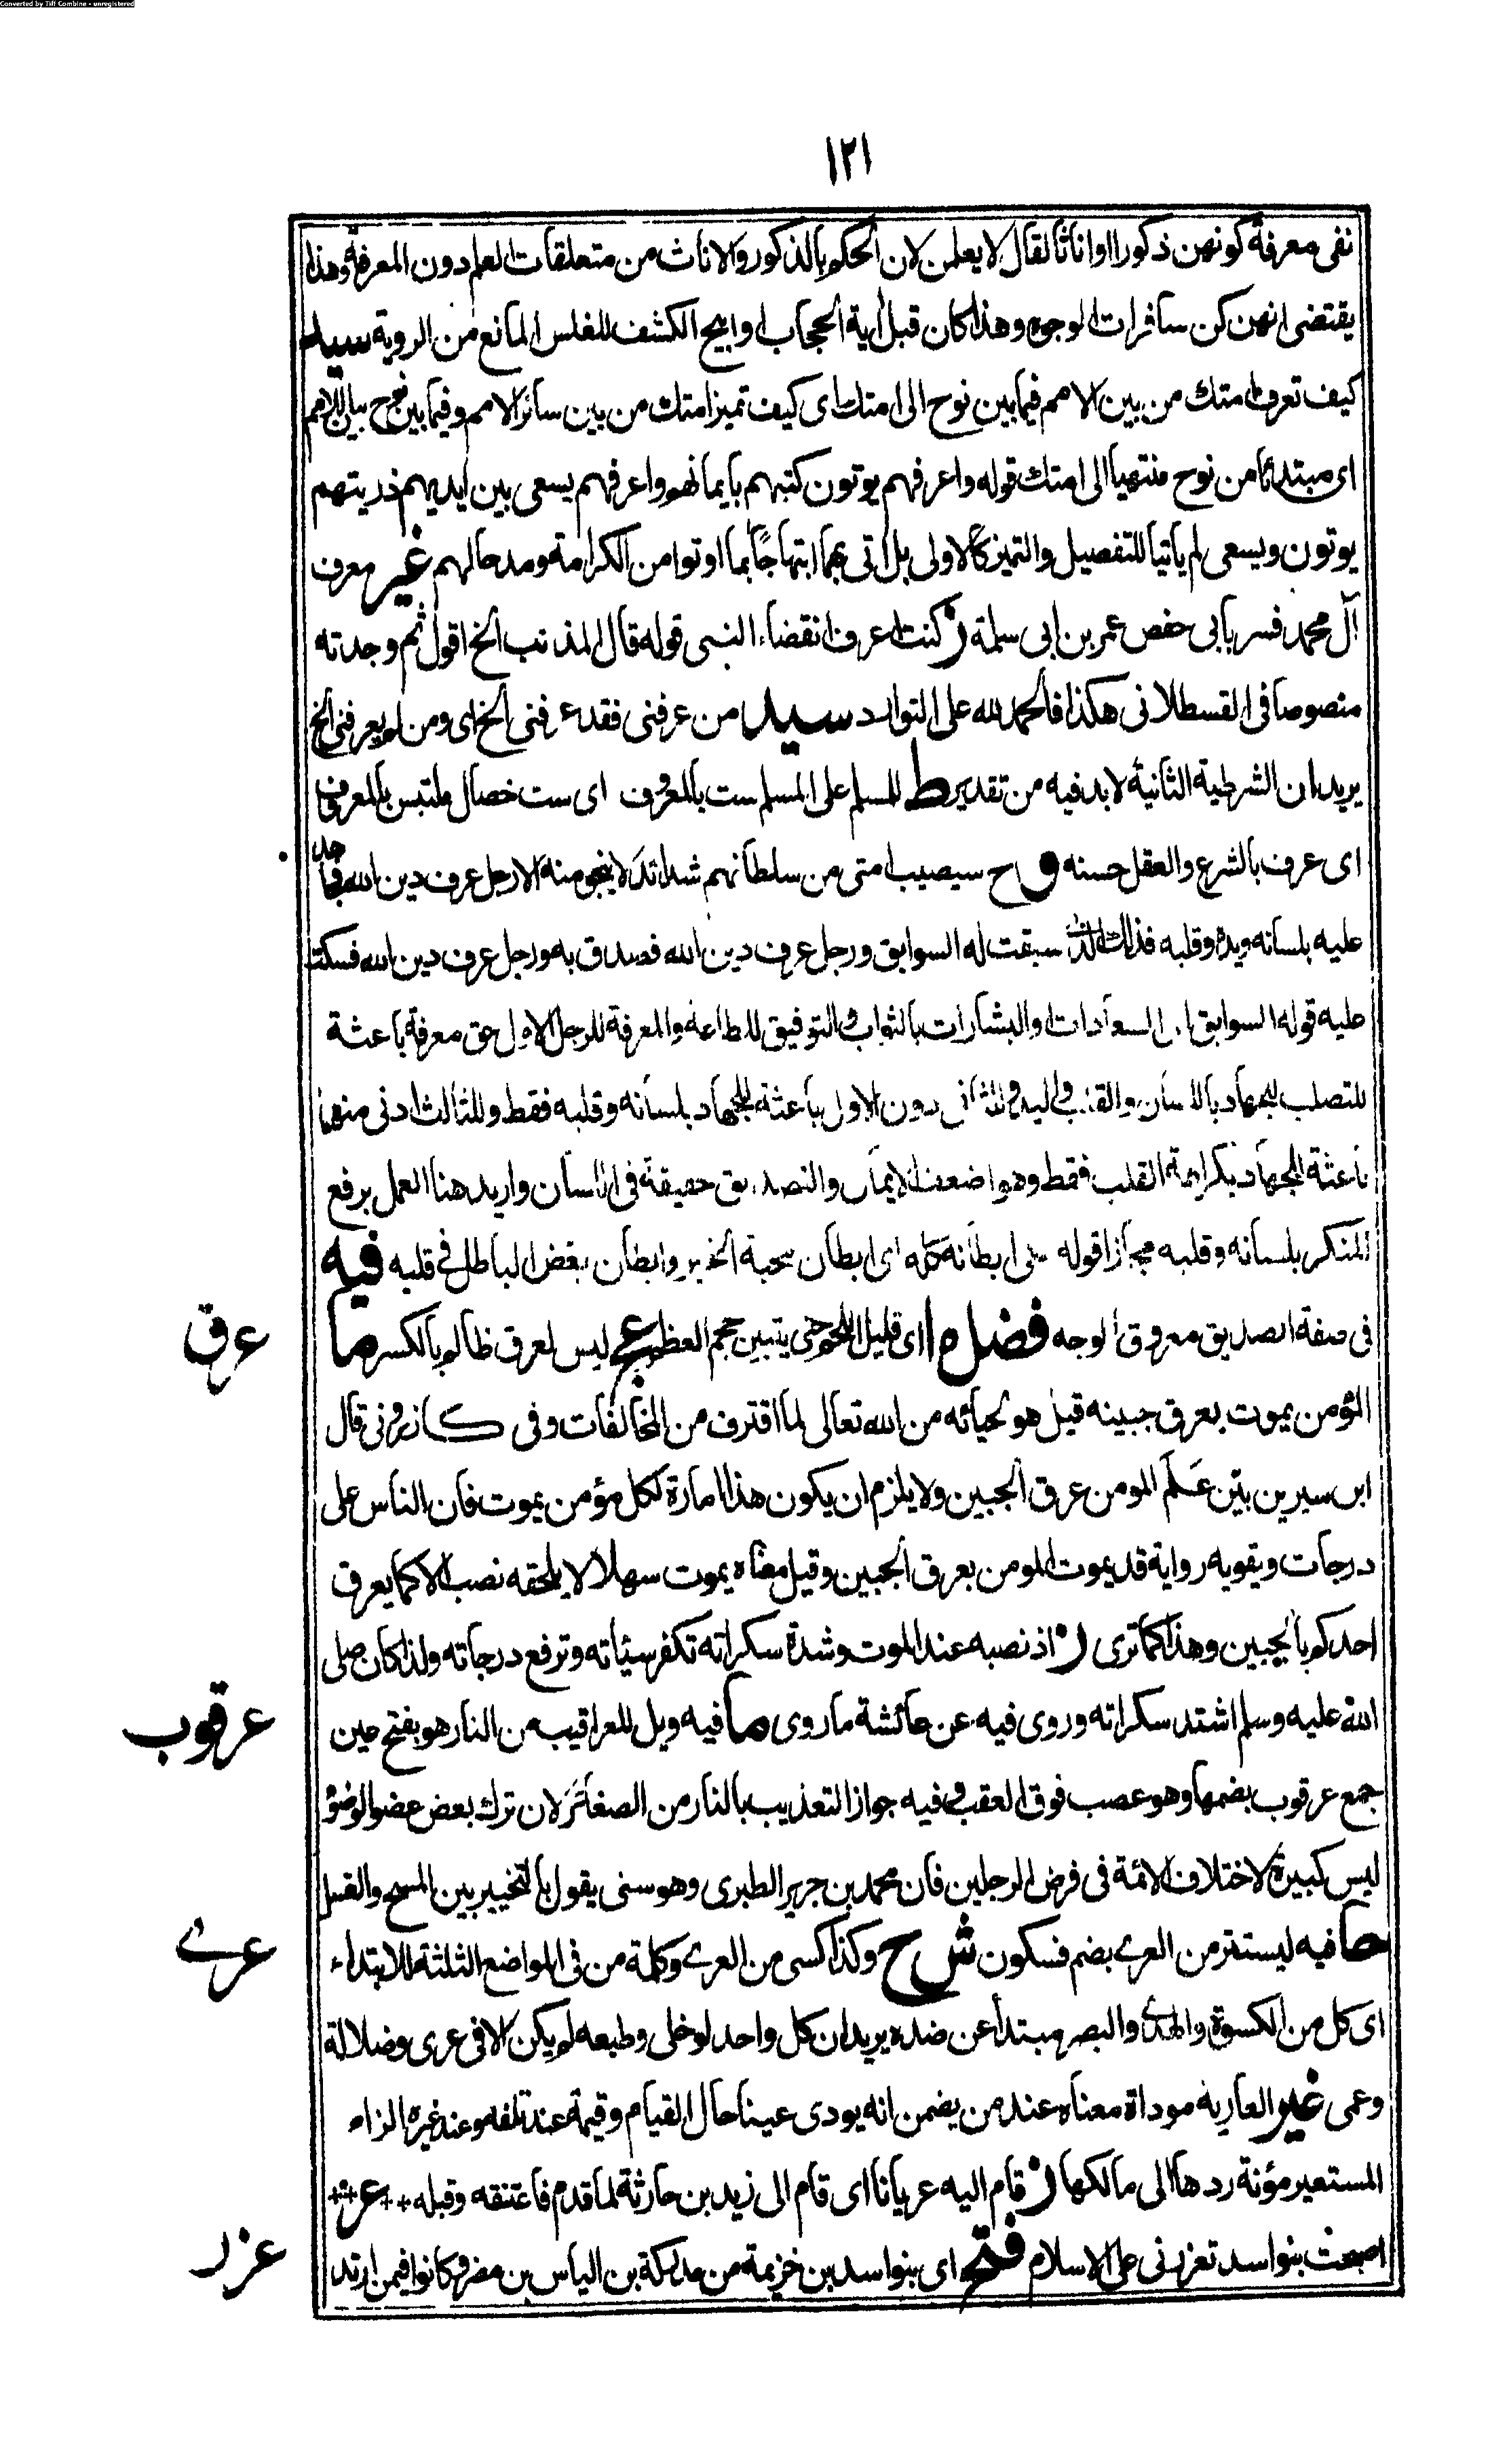 Converted by Tiff Combine - unregistered
١٢١
نفى معرفة كونهن ذكورا او اناثا لقال لا يعلمن لان الحكم بالذكور والاناث من متعلقات العلم دون المعرفة وهذا
يقتضى انهن كن سافرات الوجوه وهذا كان قبل اية الحجاب او ابيح الكشف للغلس المانع من الروية سيد
كيف تعرف امتك من بين الامم فيما بين نوح الى امتك اى كيف تميز امتك من بين سائر الامم وفيما بين نوح بيان للامم
اى مبتدئا من نوح منتهيا الى امتك قوله واعرفهم يوتون كتبهم بايمانهم واعرفهم يسعى بين ايديهم ذريتهم
يوتون ويسعى لم ياتيا للتفصيل والتميز كالاولى بل اتى بهما ابتهاجا بما اوتوا من الكرامة ومدحا لهم غير معرف
آل محمد فسر بابى حفص عمر بن ابى سلمة ن كنت اعرف انقضاء النبى قوله قال المذنب الخ اقول ثم وجدته
منصوصا فى القسطلانى هكذا فالحمد لله على التوارد سيد من عرفنى فقد عرفنى الخ اى ومن لم يعرفنى الخ
يريد ان الشرطية الثانية لا بد فيه من تقدير ط للمسلم على المسلم ست بالمعروف اى ست خصال ملتبس بالمعروف
اى عرف بالشرع والعقل حسنه و ح سيصيب امتى من سلطانهم شدائد لا ينجو منه الا رجل عرف دين الله فجاهد
عليه بلسانه ويده وقلبه فذلك الذى سبقت له السوابق ورجل عرف دين الله فصدق به ورجل عرف دين الله فسكت
عليه قوله السوابق اى السعادات والبشارات بالثواب والتوفيق للطاعة والمعرفة للرجل الاول حق معرفة باعثة
للتصلب للجهاد باللسان والقلب واليد وللثانى دون الاول باعثة للجهاد بلسانه وقلبه فقط وللثالث ادنى منهما
باعثة للجهاد بكراهة القلب فقط وهو اضعف الايمان والتصديق حقيقة فى اللسان واريد هنا العمل برفع
المنكر بلسانه وقلبه مجازا قوله على ابطانه كله اى ابطان محبة الخير وابطان بغض الباطل فى قلبه فيه
فى صفة الصديق معروق الوجه فضل م ا اى قليل اللحم حتى يتبين حجم العظم ع ليس لعرق ظالم بالكسر ما
عرق
المؤمن يموت بعرق جبينه قيل هو لحيائه من الله تعالى لما اقترف من المخالفات وفى كازرونى قال
ابن سيرين بين علم المومن عرق الجبين ولا يلزم ان يكون هذا امارة لكل مؤمن يموت فان الناس على
درجات ويقويه رواية قد يموت المومن بعرق الجبين وقيل معناه يموت سهلا لا يلحقه نصب الا كما يعرق
احدكم بالجبين وهذا كما ترى ن اذ نصبه عند الموت وشدة سكراته تكفر سيئاته وترفع درجاته ولذا كان صلى
الله عليه وسلم اشتد سكراته وروى فيه عن عائشة ما روى ما فيه ويل للعراقيب من النار هو بفتح عين
عرقوب
جمع عرقوب بضمها وهو عصب فوق العقب وفيه جواز التعذيب بالنار من الصغائر لان ترك بعض عضو الوضوء
ليس كبيرة لاختلاف الائمة فى فرض الرجلين فان محمد بن جرير الطبرى وهو سنى يقول بالتخيير بين المسح والغسل
حا فيه ليستتر من العرى بضم فسكون ش ح وكذا كسى من العرى وكلمة من فى المواضع الثلثة للابتداء
عرے
اى كل من الكسوة والهدى والبصر مبتدأ عن ضده يريد ان كل واحد لو خلى وطبعه لم يكن الا فى عرى وضلالة
وعمى غير العارية موداة معناه عند من يضمن انه يودى عينا حال القيام وقيمة عند تلفه وعند غيره الزام
المستعير مؤنة ردها الى مالكها ن قام اليه عريانا اى قام الى زيد بن حارثة لما قدم فاعتنقه وقبله عز
اصبحت بنو اسد تعزرنى على الاسلام فتح اى بنو اسد بن خزيمة من مدركة بن الياس بن مضر وكانوا فيمن ارتد
عزر